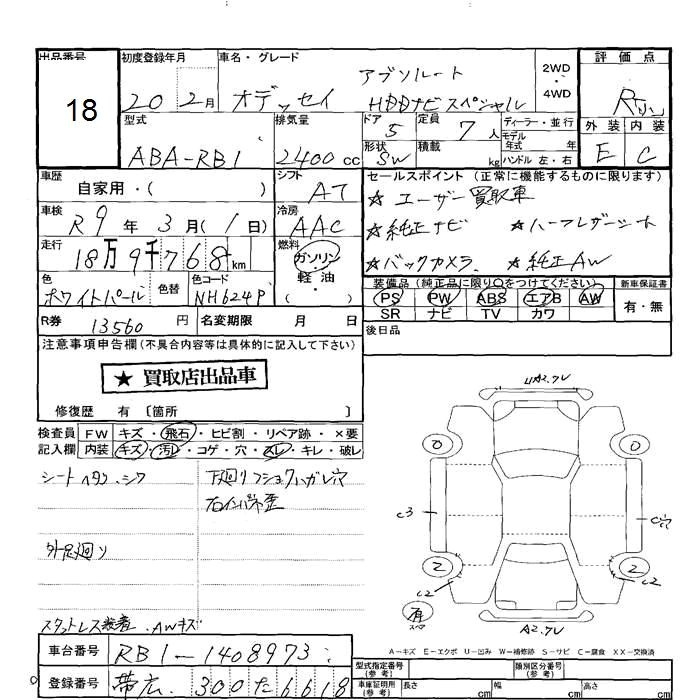 出品番号 初度登録年月 車名・グレード 2WD・4WD 評価点
18 20 2月 オデッセイ アブソルート HDDナビスペシャル R
型式 排気量 ドア 5 定員 7人 ディーラー・並行 外装 内装
ABA-RB1 2400cc 形状 SW 積載 kg モデル年式 年式 ハンドル 左・右 E C
車歴 自家用・( ) シフト AT セールスポイント (正常に機能するものに限ります)
★ ユーザー買取車
車検 R9年3月(1日) 冷房 AAC
★純正ナビ ★ハーフレザーシート
走行 18万9千768km 燃料 ガソリン・軽油・( )
★バックカメラ ★純正AW
色 ホワイトパール 色替 色コード NH624P
装備品 (純正品に限り○をつけてください) 新車保証書
PS PW ABS エアB AW 有・無
SR ナビ TV カワ
R券 13560円 名変期限 月 日 後日品
注意事項申告欄(不具合内容等は具体的に記入して下さい)
★ 買取店出品車
修復歴 有 〔箇所 〕
検査員記入欄 FW キズ・飛石・ヒビ割・リペア跡・×要
内装 キズ・汚レ・コゲ・穴・スレ・キレ・破レ
シート ヘタリ.シワ 下廻り
右インパネ歪
外 足廻り
スタットレス装着.AWキズ
車台番号 RB1-1408973
登録番号 帯広 300 た 6618
A2.7U
0 0
C3 C
2 2
C2 C2
有 スペア
A2.7U
A-キズ E-エクボ U-凹み W-補修跡 S-サビ C-腐食 XX-交換済
型式指定番号(参考) 類別区分番号(参考)
車庫証明用(参考) 長さ cm 幅 cm 高さ cm